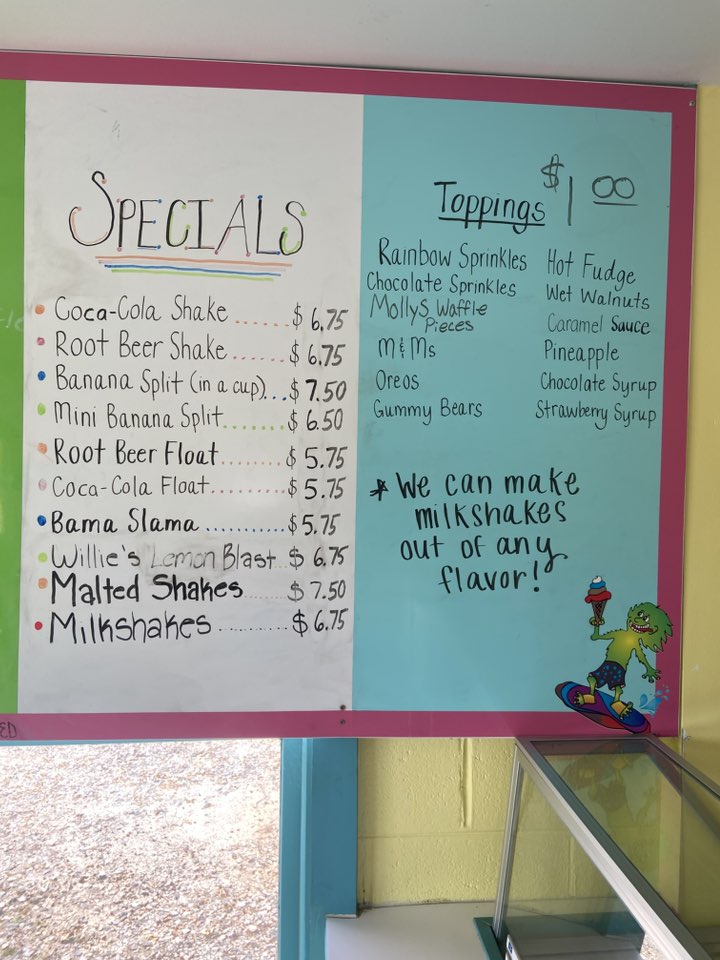 SPECIALS
Coca-Cola Shake ...... $ 6.75
Root Beer Shake ...... $ 6.75
Banana Split (in a cup)... $ 7.50
Mini Banana Split ....... $ 6.50
Root Beer Float ........ $ 5.75
Coca-Cola Float ........ $ 5.75
Bama Slama ........... $ 5.75
Willie's Lemon Blast $ 6.75
Malted Shakes ...... $ 7.50
Milkshakes ........... $ 6.75
Toppings $1 00
Rainbow Sprinkles
Chocolate Sprinkles
Mollys Waffle
Pieces
M&Ms
Oreos
Gummy Bears
Hot Fudge
Wet Walnuts
Caramel Sauce
Pineapple
Chocolate Syrup
Strawberry Syrup
* We can make
milkshakes
out of any
flavor!